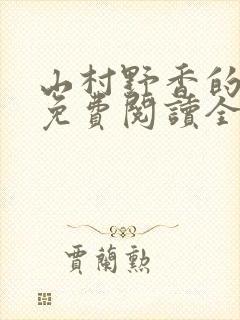 山村野香的
免費閱讀全
賈蘭勲